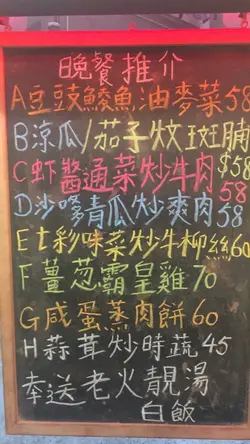 晚餐推介
A豆豉鯪魚油麥菜58
B涼瓜/茄子炆斑腩
$58
C虾醬通菜炒牛肉
58
D沙嗲青瓜炒爽肉58
E七彩味菜炒牛柳絲60
F薑葱霸皇雞70
G咸蛋蒸肉餅60
H蒜茸炒時蔬45
奉送老火靚湯
白飯